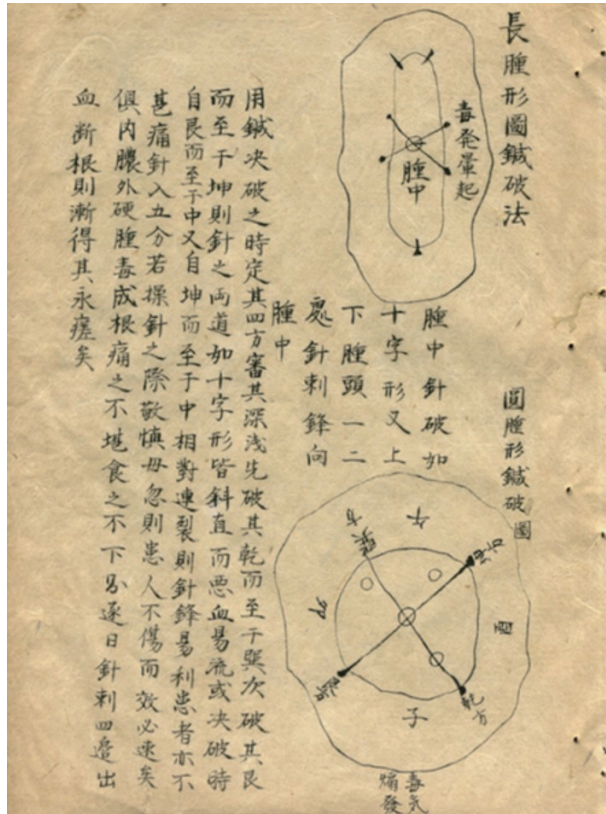 長腫形圖鍼破法
毒発暈起
腫中
腫中針破如
十字形又上
下腫頭一二
處針刺鋒向
腫中
圓腫形鍼破圖
午
巽方
坤方
卯
酉
子
乾方
毒気
發
用鍼决破之時定其四方審其深浅先破其乾而至于巽次破其艮
而至于坤則針之両道如十字形皆斜直而悪血易流或决破時
自艮而至于中又自坤而至于中相對連裂則針鋒易利患者亦不
甚痛針入五分若操針之際敬慎毋忽則患人不傷而效必速矣
俱内膿外硬腫毒成根痛之不堪食之不下另逐日針刺四邊出
血斷根則漸得其永瘥矣